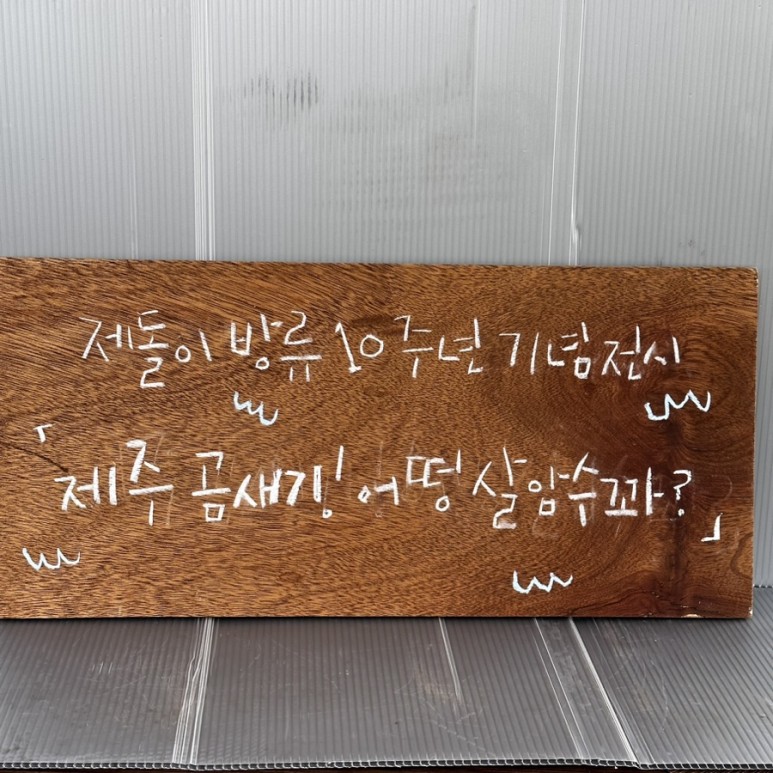 제돌이 방류 10주년 기념 전시
「제주 곰새기! 어떵 살암수꽈?」